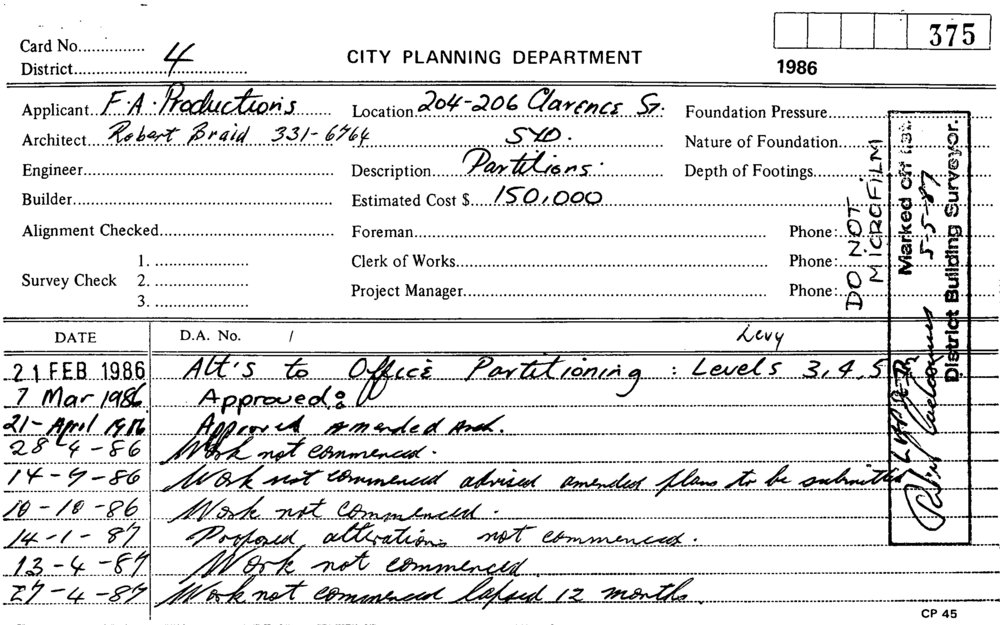 Card No.
375
District 4
CITY PLANNING DEPARTMENT
1986
Applicant F.A. Productions
Location 204-206 Clarence St.
Foundation Pressure
Architect Robert Braid 331-6764
SYD.
Nature of Foundation
Engineer
Description Partitions.
Depth of Footings
Builder
Estimated Cost $ 150,000
Alignment Checked
Foreman
Phone:
Survey Check
1.
2.
3.
Clerk of Works
Phone:
Project Manager
Phone:
DO NOT
MICROFILM
Marked off list.
5-5-87
District Building Surveyor.
DATE
D.A. No. /
Levy
21 FEB 1986 Alt's to Office Partitioning : Levels 3, 4, 5
7 Mar 1986 Approved:
21-April 1986 Approved Amended Arch.
28-4-86 Work not commenced.
14-7-86 Work not commenced advised amended plans to be submitted
10-10-86 Work not commenced.
14-1-87 Proposed alterations not commenced.
13-4-87 Work not commenced.
27-4-87 Work not commenced lapsed 12 months.
CP 45